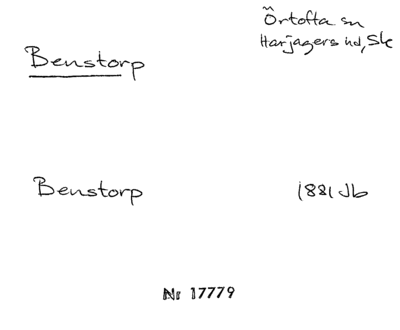 Örtofta sn
Harjagers hd, Sk
Benstorp
Benstorp 1881 Jb
Nr 17779